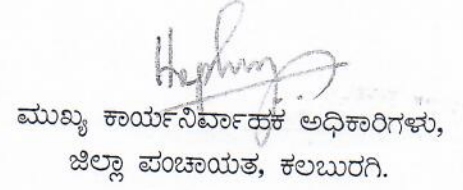 ಮುಖ್ಯ ಕಾರ್ಯನಿರ್ವಾಹಕ ಅಧಿಕಾರಿಗಳು,
ಜಿಲ್ಲಾ ಪಂಚಾಯತ, ಕಲಬುರಗಿ.